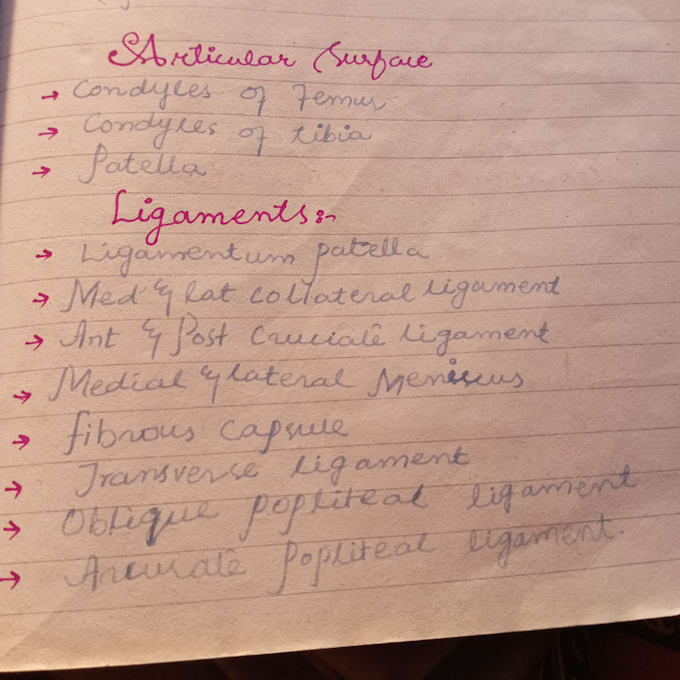 Articular Surface
→ Condyles of Femur
→ Condyles of tibia
→ Patella
Ligaments:-
→ Ligamentum patella
→ Med & lat collateral ligament
→ Ant & Post Cruciate ligament
→ Medial & lateral Meniscus
→ fibrous capsule
→ Transverse ligament
→ Oblique popliteal ligament
→ Arcuate popliteal ligament.